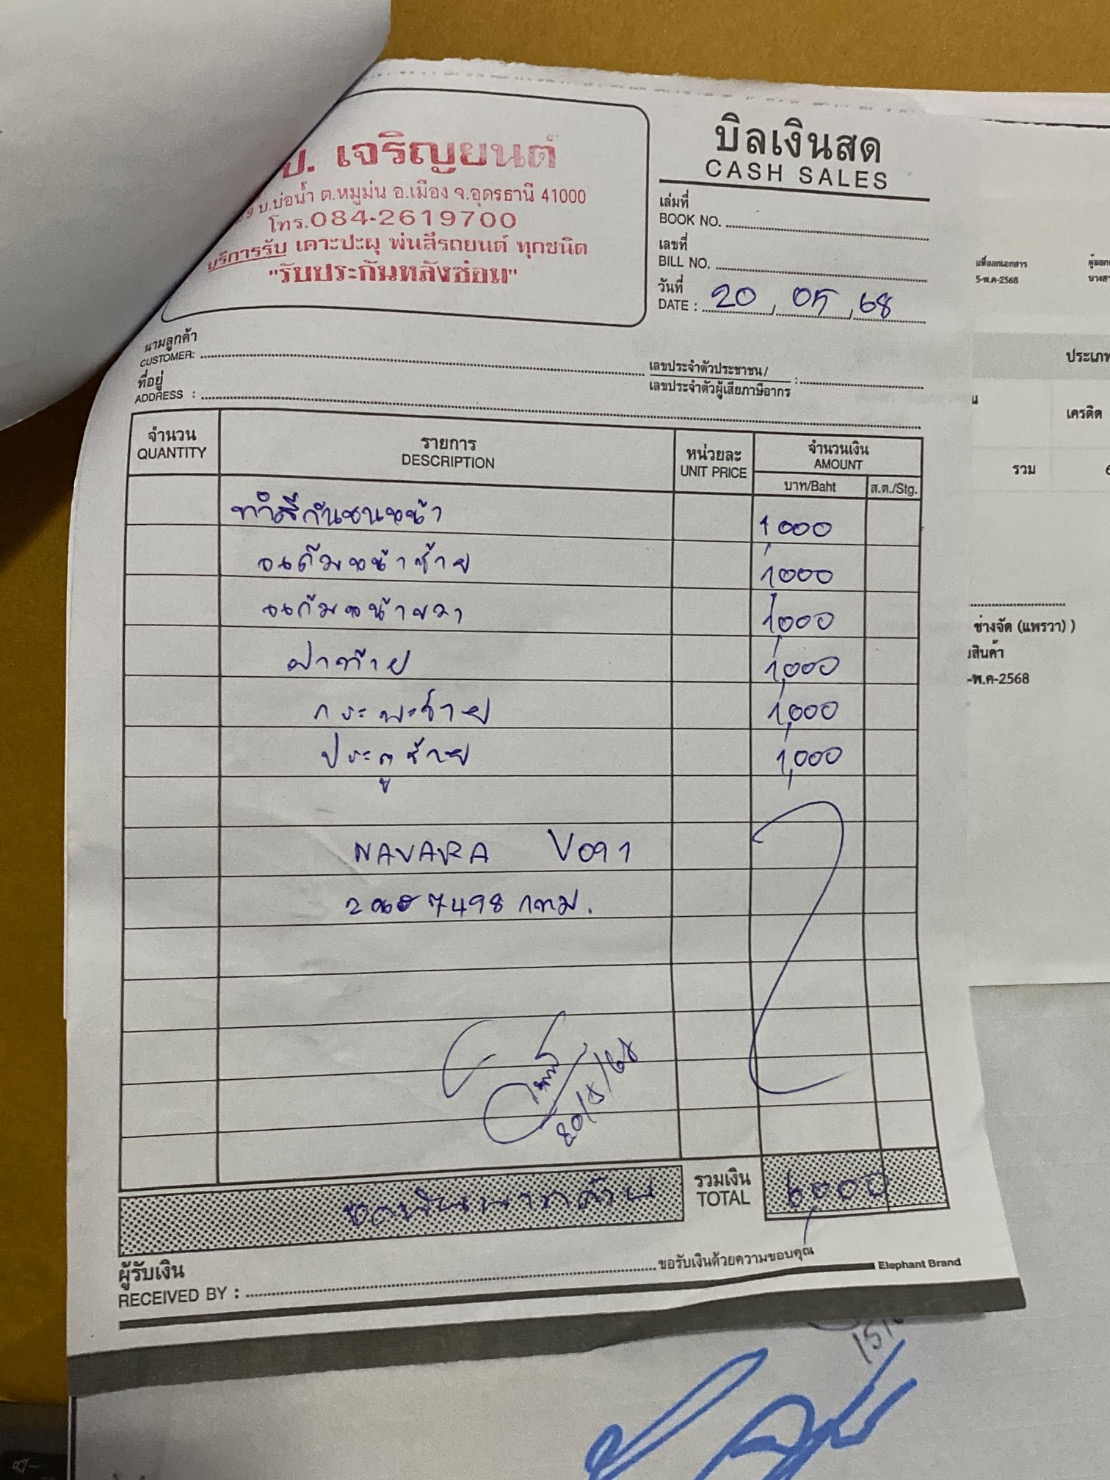 ป. เจริญยนต์
บ.บ่อน้ำ ต.หมูม่น อ.เมือง จ.อุดรธานี 41000
โทร.084-2619700
บริการรับ เคาะปะผุ พ่นสีรถยนต์ ทุกชนิด
"รับประกันหลังซ่อม"
บิลเงินสด
CASH SALES
เล่มที่
BOOK NO.
เลขที่
BILL NO.
วันที่
DATE : 20 / 05 / 68
นามลูกค้า
CUSTOMER:
เลขประจำตัวประชาชน/
เลขประจำตัวผู้เสียภาษีอากร :
ที่อยู่
ADDRESS :
จำนวน รายการ หน่วยละ จำนวนเงิน
QUANTITY DESCRIPTION UNIT PRICE AMOUNT
บาท/Baht ส.ต./Stg.
ทำสีกันชนหน้า 1,000
หน้าซ้าย 1,000
หน้าขวา 1,000
ฝาท้าย 1,000
กระบะซ้าย 1,000
ประตูซ้าย 1,000
NAVARA V091
7498 กทม.
20/5/68
รวมเงิน
TOTAL 6,000
หกพันบาทถ้วน
ผู้รับเงิน
RECEIVED BY :
ขอรับเงินด้วยความขอบคุณ
Elephant Brand
5-พ.ค-2568
ประเภท
เครดิต
รวม
ช่างจัด (แพรวา) )
สินค้า
-พ.ค-2568